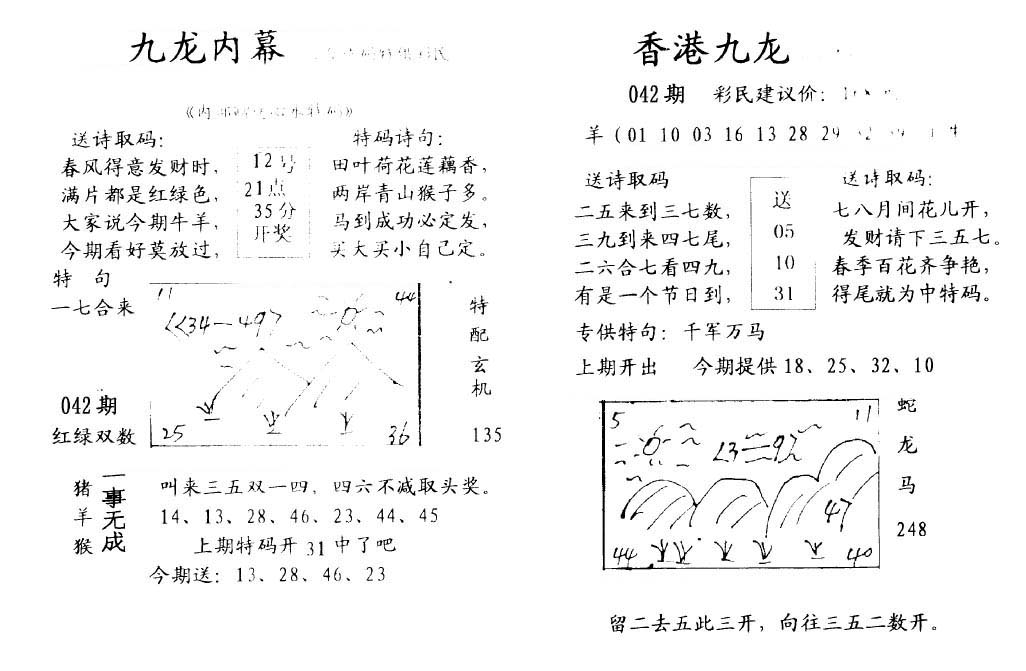 九龙内幕
送诗取码：
春风得意发财时，
满片都是红绿色，
大家说今期牛羊，
今期看好莫放过，
12号
21点
35分
开奖
特码诗句：
田叶荷花莲藕香，
两岸青山猴子多。
马到成功必定发，
买大买小自己定。
特 句
一七合来
042期
红绿双数
11
44
34—49
25
36
特
配
玄
机
135
猪
羊
猴
一事无成
叫来三五双一四，四六不减取头奖。
14、13、28、46、23、44、45
上期特码开 31 中了吧
今期送：13、28、46、23
香港九龙
042期 彩民建议价：
羊（01 10 03 16 13 28 29
送诗取码
二五来到三七数，
三九到来四七尾，
二六合七看四九，
有是一个节日到，
送
05
10
31
送诗取码：
七八月间花儿开，
发财请下三五七。
春季百花齐争艳，
得尾就为中特码。
专供特句：千军万马
上期开出 今期提供 18、25、32、10
5
11
47
44
40
蛇
龙
马
248
留二去五此三开，向往三五二数开。